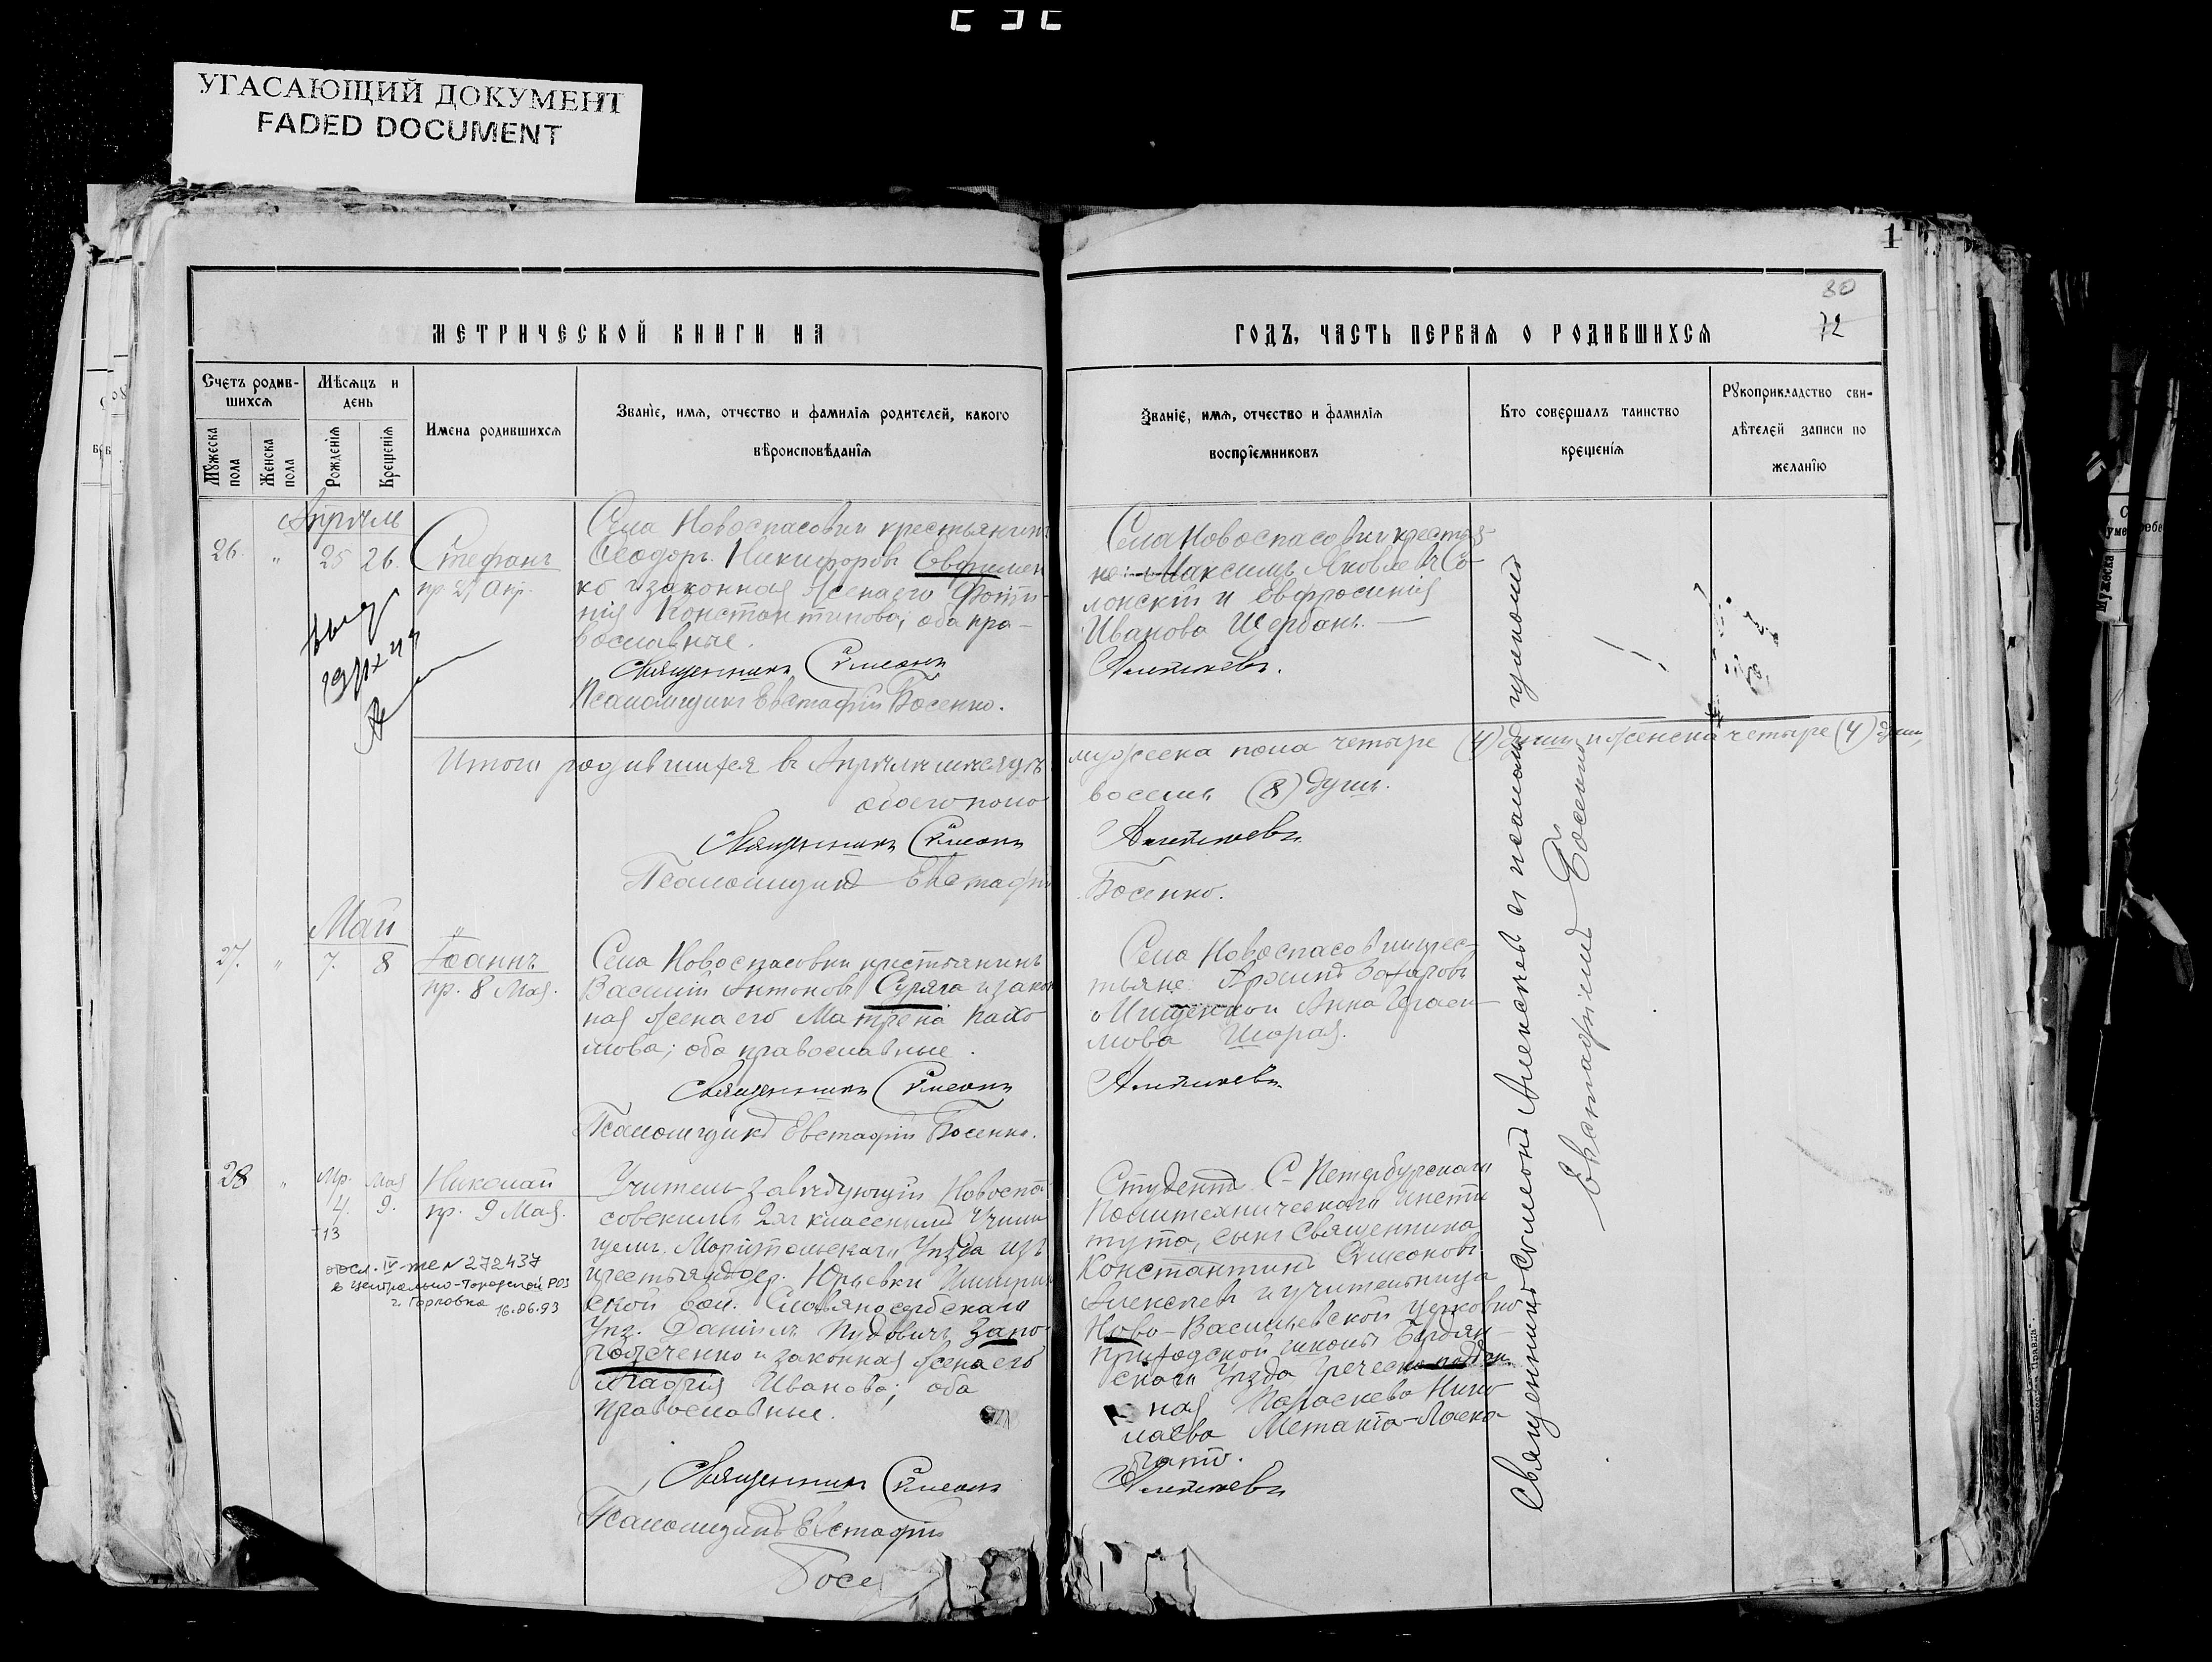 УГАСАЮЩИЙ ДОКУМЕНТ
FADED DOCUMENT
1
80
72
МЕТРИЧЕСКОЙ КНИГИ НА
ГОДЪ, ЧАСТЬ ПЕРВАЯ О РОДИВШИХСЯ
Счетъ родив-
шихся
Мужеска пола
Женска пола
Мѣсяцъ и
день
Рожденія
Крещенія
Имена родившихся
Званіе, имя, отчество и фамилія родителей, какого
вѣроисповѣданія
Званіе, имя, отчество и фамилія
воспріемниковъ
Кто совершалъ таинство
крещенія
Рукоприкладство сви-
дѣтелей записи по
желанію
Апрѣль
26. " 25 26.
Стефанъ
пр. 27 Апр.
Села Новоспасовки крестьянинъ
Ѳеодоръ Никифоровъ Евфимен
ко и законная жена его Фоти-
нія Константинова; оба пра-
вославные.
Священникъ Симеонъ
Псаломщикъ Евстафій Босенко.
Села Новоспасовки крестья-
не: Максимъ Яковлевъ Со-
лонскій и Евфросинія
Иванова Щербань.
Алексѣевъ.
Итого родившихся въ Апрѣлѣ мѣсяцѣ
мужеска пола четыре (4) души и женска четыре (4) души,
обоего пола
восемь (8) душъ.
Священникъ Симеонъ
Алексѣевъ
Псаломщикъ Евстафій
Босенко.
Май
27. " 7. 8
Іоаннъ
пр. 8 Мая.
Села Новоспасовки крестьянинъ
Василій Антоновъ Суряга и закон
ная жена его Матрена Пахо
мова; оба православные.
Священникъ Симеонъ
Псаломщикъ Евстафій Босенко.
Села Новоспасовки крес-
тьяне: Захаровъ
и Анна Гераси-
мова
Алексѣевъ
28 " Мр. Мая
4. 9.
+13
Николай
пр. 9 Мая.
272437
16.06.93
г. Горловка
Учитель-завѣдующій Новоспа
совскимъ 2хъ класснымъ Учили
щемъ, Маріупольскаго Уѣзда изъ
крестьянъ дер. Юрьевки
ской вол. Славяносербскаго
Уѣз. Даніилъ Запо
рожченко и законная жена его
Агафія Иванова; оба
православные.
Священникъ Симеонъ
Псаломщикъ Евстафій
Босе
Студентъ С-Петербургскаго
Политехническаго Инсти
тута, сынъ Священника
Константинъ Симеоновъ
Алексѣевъ и учительница
Ново-Васильевской церковно
приходской школы Бердян-
скаго Уѣзда Греческо-поддан
ная Параскева Нико
лаева
Алексѣевъ
Священникъ Симеонъ Алексѣевъ съ псаломщикомъ
Евстафіемъ Босенко